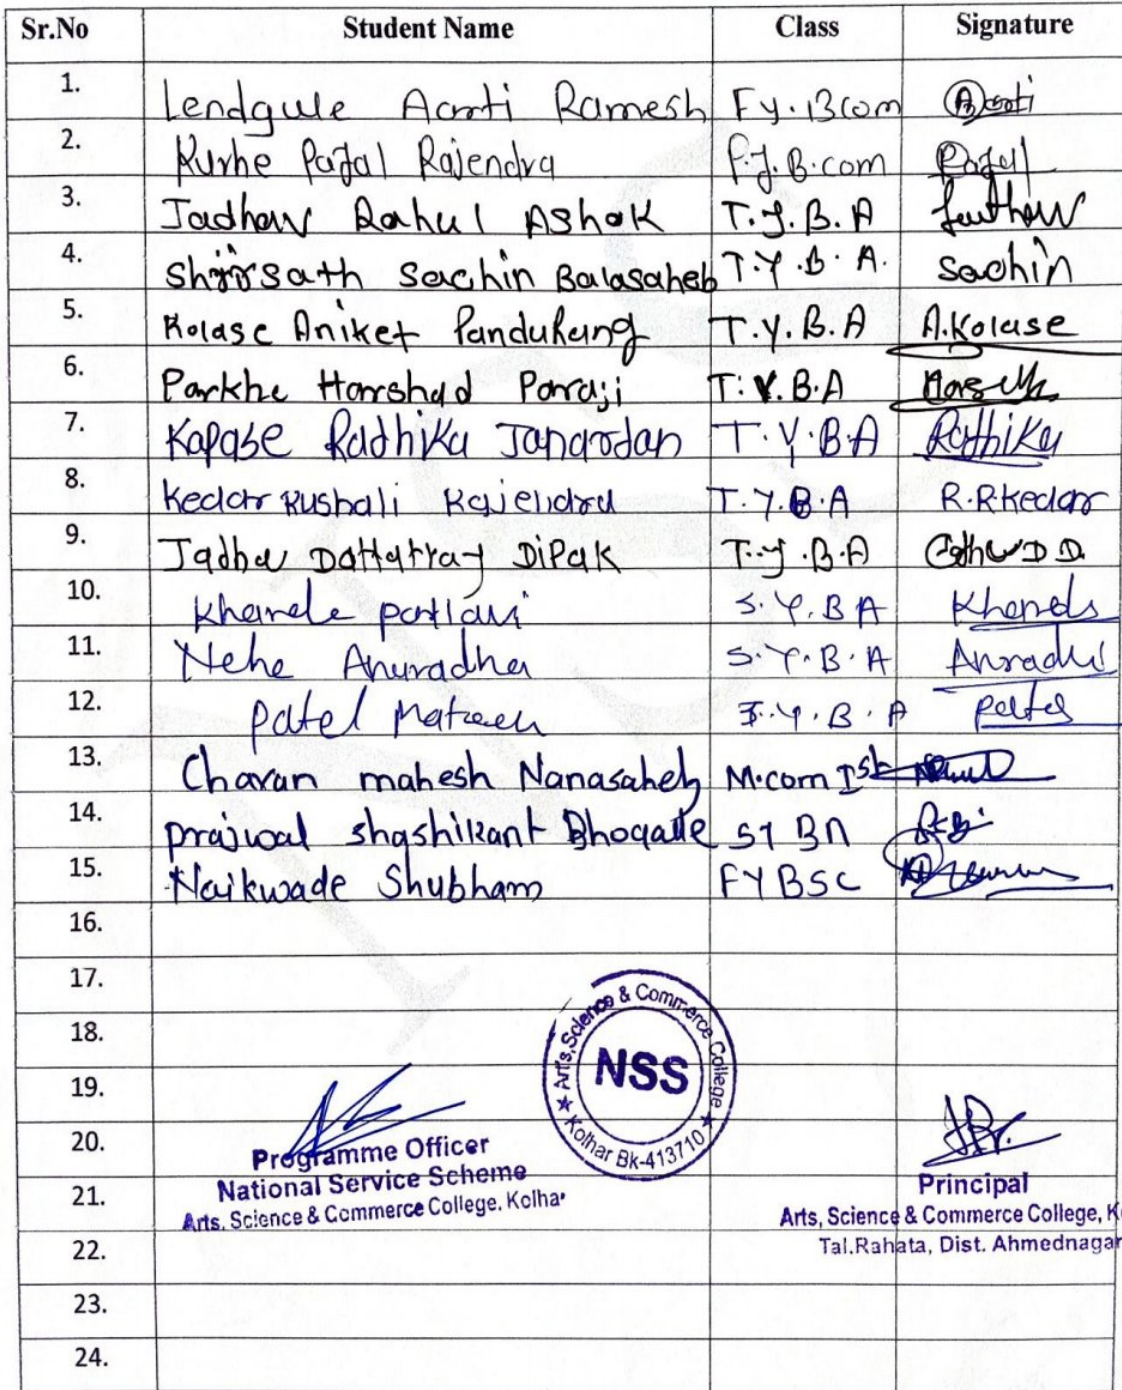 Sr.No Student Name Class Signature
1. Lendgule Aarti Ramesh Fy.Bcom Aarti
2. Kurhe Pajal Rajendra F.Y.B.com Pajal
3. Jadhav Rahul Ashok T.Y.B.A Jadhav
4. Shirsath Sachin Balasaheb T.Y.B.A. Sachin
5. Kolase Aniket Pandurang T.Y.B.A A.Kolase
6. Parkhe Harshad Paraji T.Y.B.A
7. Kapase Radhika Janardan T.Y.B.A Radhika
8. Kedar Rushali Rajendra T.Y.B.A R.R.Kedar
9. Jadhav Dattatray Dipak T.Y.B.A
10. Khande S.Y.BA
11. Nehe Anuradha S.Y.B.A Anradha
12. Patel Mateen Y.B.A Patel
13. Chavan mahesh Nanasaheb M.com Ist
14. prajwal shashikant SY BA
15. Naikwade Shubham FYBSC
16.
17.
18.
19.
20.
21.
22.
23.
24.
Arts, Science & Commerce College
NSS
Kolhar Bk-413710
Programme Officer
National Service Scheme
Arts, Science & Commerce College, Kolhar
Principal
Arts, Science & Commerce College, Ko
Tal.Rahata, Dist. Ahmednagar